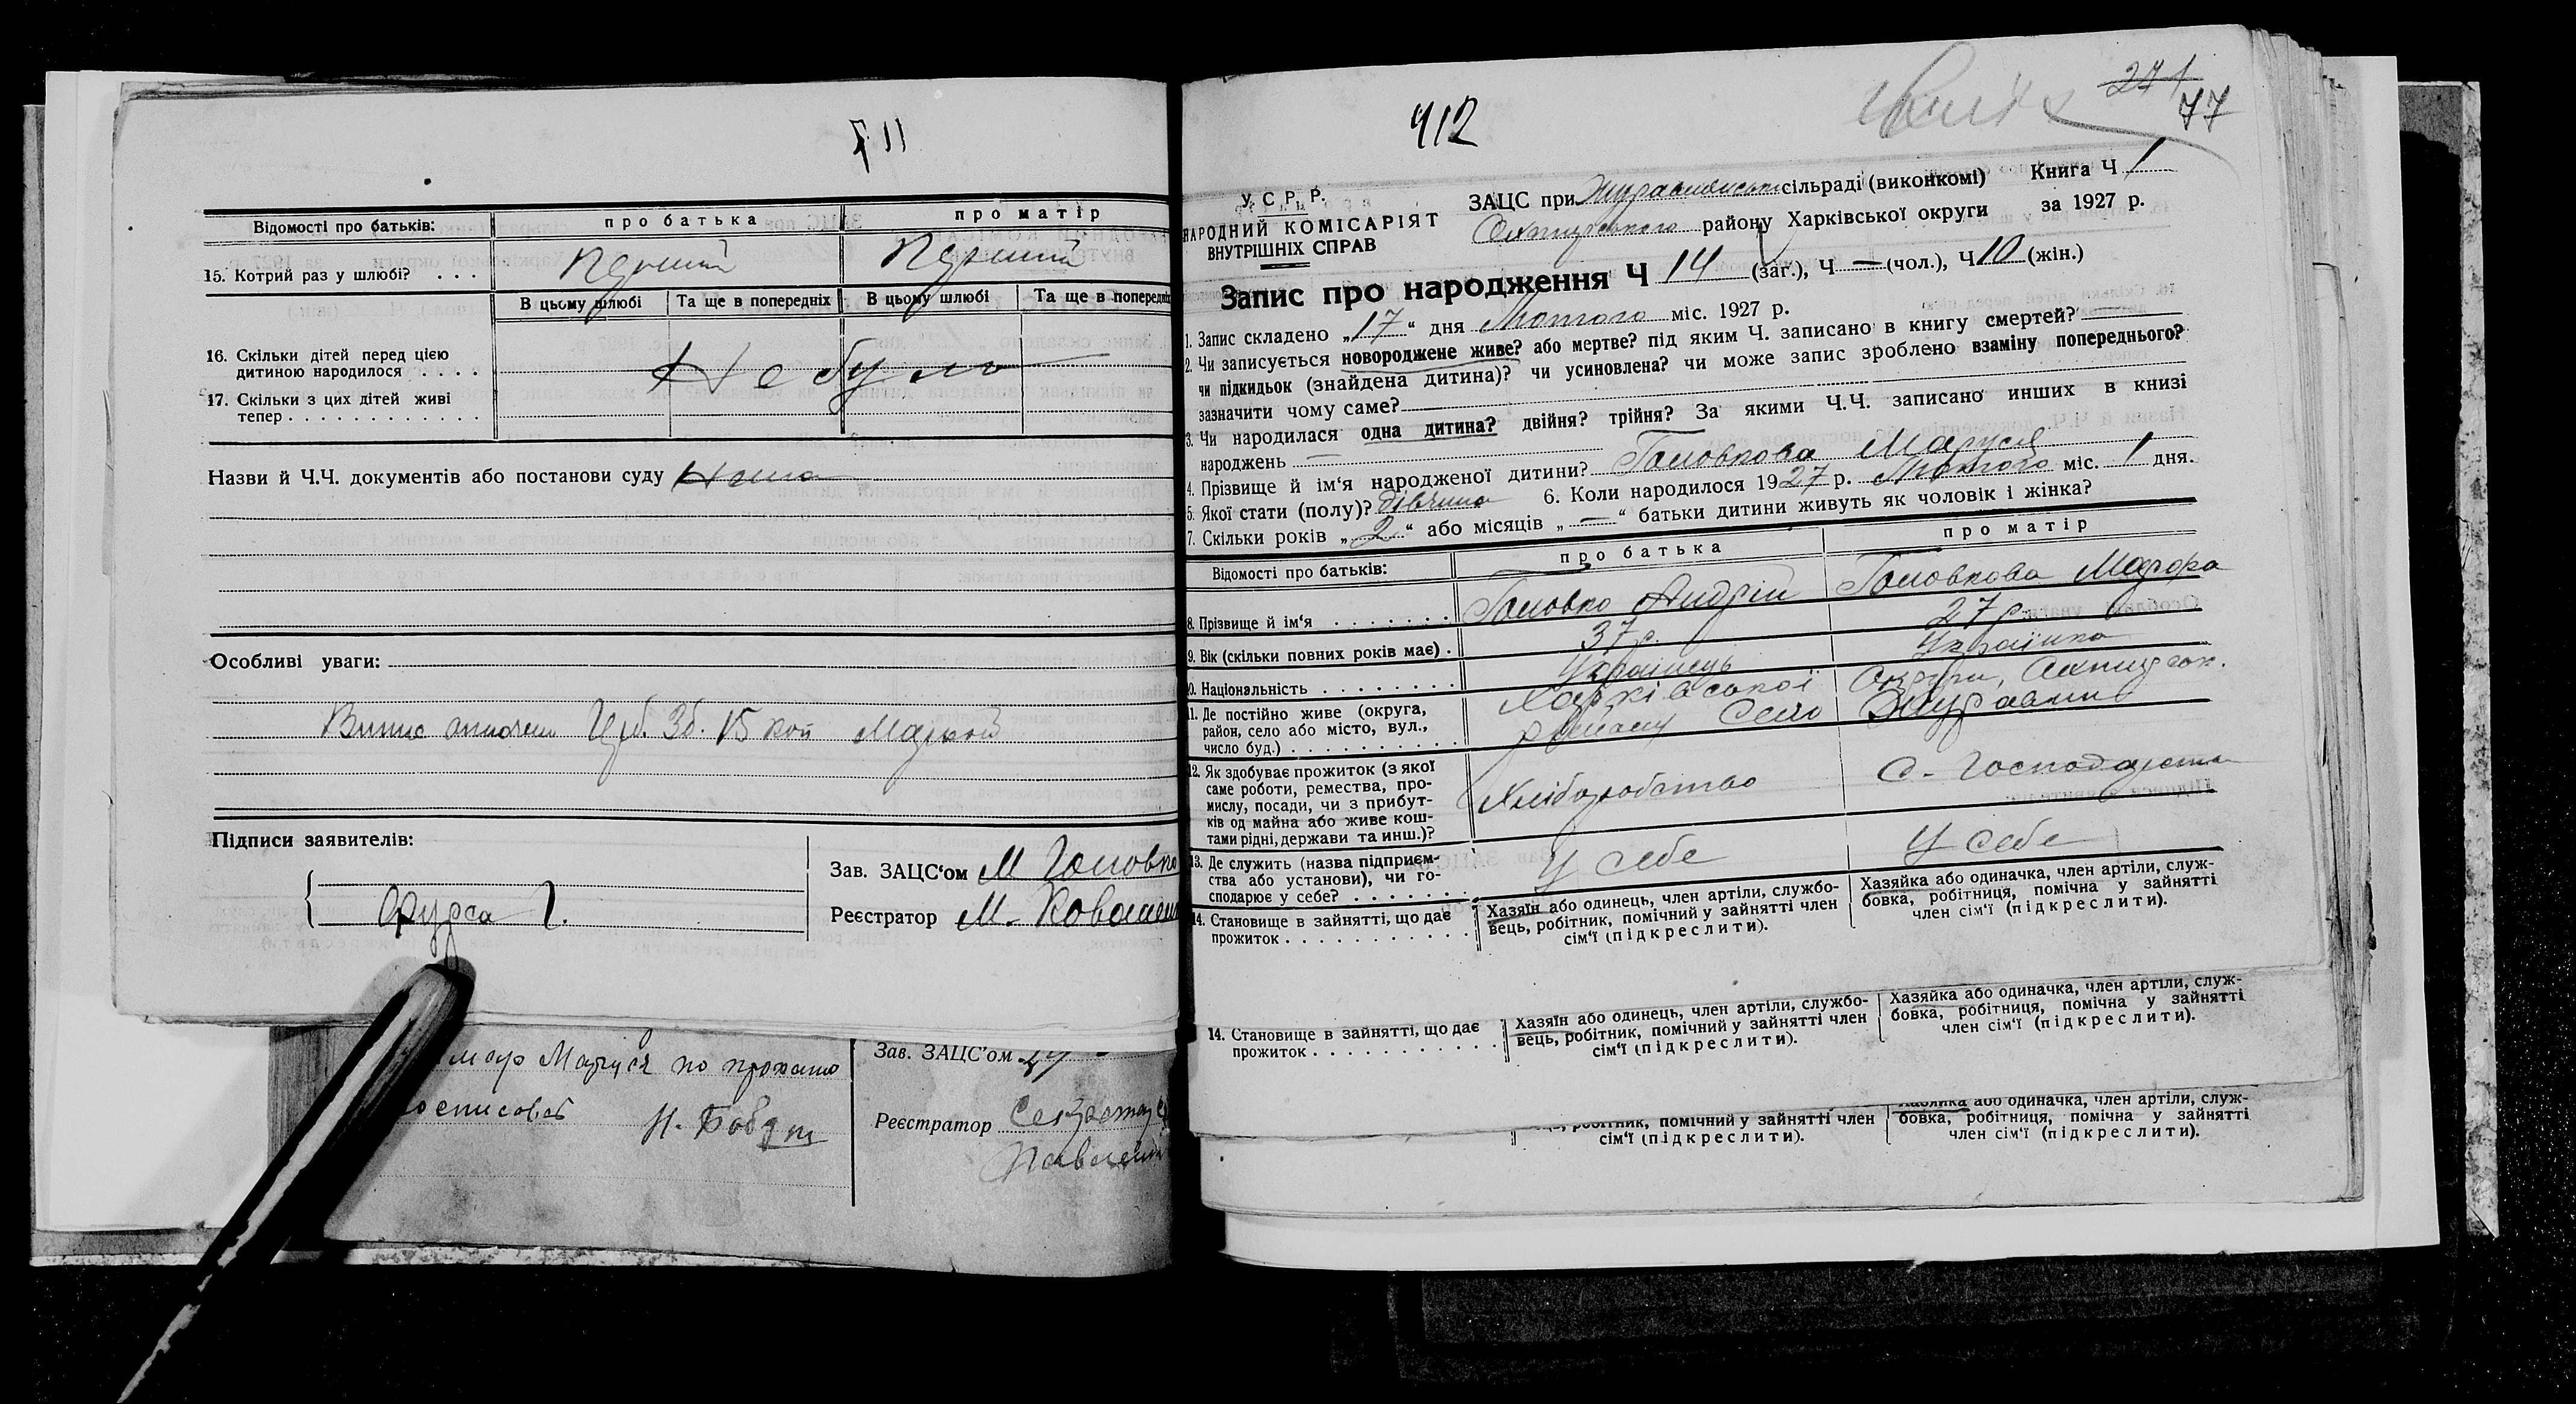 411
Відомості про батьків: про батька про матір
15. Котрий раз у шлюбі? . . . Перший Перший
В цьому шлюбі Та ще в попередніх В цьому шлюбі Та ще в попередніх
16. Скільки дітей перед цією
дитиною народилося . . . .
Не було
17. Скільки з цих дітей живі
тепер . . . . . . . . . . . .
Назви й Ч.Ч. документів або постанови суду Нема
Особливі уваги:
15 коп
Підписи заявителів:
Фурса Г.
Зав. ЗАЦС‘ом М Головко
Реєстратор М. Ковален
Маруся по
Н.
Зав. ЗАЦС'ом
Реєстратор Секретар
412
271
77
У. С. Р. Р.
НАРОДНИЙ КОМІСАРІЯТ
ВНУТРІШНІХ СПРАВ
ЗАЦС при Журавлянськ сільраді (виконкомі) Книга Ч 1
району Харківської округи за 1927 р.
Запис про народження Ч 14 (заг.), Ч — (чол.), Ч 10 (жін.)
1. Запис складено „17“ дня Лютого міс. 1927 р.
2. Чи записується новороджене живе? або мертве? під яким Ч. записано в книгу смертей?
чи підкидьок (знайдена дитина)? чи усиновлена? чи може запис зроблено взаміну попереднього?
зазначити чому саме?
3. Чи народилася одна дитина? двійня? трійня? За якими Ч.Ч. записано инших в книзі
народжень —
4. Прізвище й ім‘я народженої дитини? Головкова Маруся
5. Якої стати (полу)? дівчина 6. Коли народилося 1927 р. Лютого міс. 1 дня.
7. Скільки років „2“ або місяців „—“ батьки дитини живуть як чоловік і жінка?
Відомості про батьків: про батька про матір
8. Прізвище й ім‘я . . . . . . . Головко Андрій Головкова
9. Вік (скільки повних років має) . 37 р. 27 р.
10. Національність . . . . . . . . Українець Українка
11. Де постійно живе (округа,
район, село або місто, вул.,
число буд.) . . . . . . . . . .
Харківської Округи,
Село Журавли
12. Як здобуває прожиток (з якої
саме роботи, ремества, про-
мислу, посади, чи з прибут-
ків од майна або живе кош-
тами рідні, держави та инш.)?
Хліборобство С-Господарство
13. Де служить (назва підприєм-
ства або установи), чи го-
сподарює у себе? . . . . . . .
У себе У себе
14. Становище в зайнятті, що дає
прожиток . . . . . . . . . . . .
Хазяїн або одинець, член артіли, службо-
вець, робітник, помічний у зайнятті член
сім‘ї (підкреслити).
Хазяйка або одиначка, член артіли, служ-
бовка, робітниця, помічна у зайнятті
член сім‘ї (підкреслити).
14. Становище в зайнятті, що дає
прожиток . . . . . . . . . . . .
Хазяїн або одинець, член артіли, службо-
вець, робітник, помічний у зайнятті член
сім‘ї (підкреслити).
Хазяйка або одиначка, член артіли, служ-
бовка, робітниця, помічна у зайнятті
член сім‘ї (підкреслити).
робітник, помічний у зайнятті член
сім‘ї (підкреслити).
Хазяйка або одиначка, член артіли, служ-
бовка, робітниця, помічна у зайнятті
член сім‘ї (підкреслити).